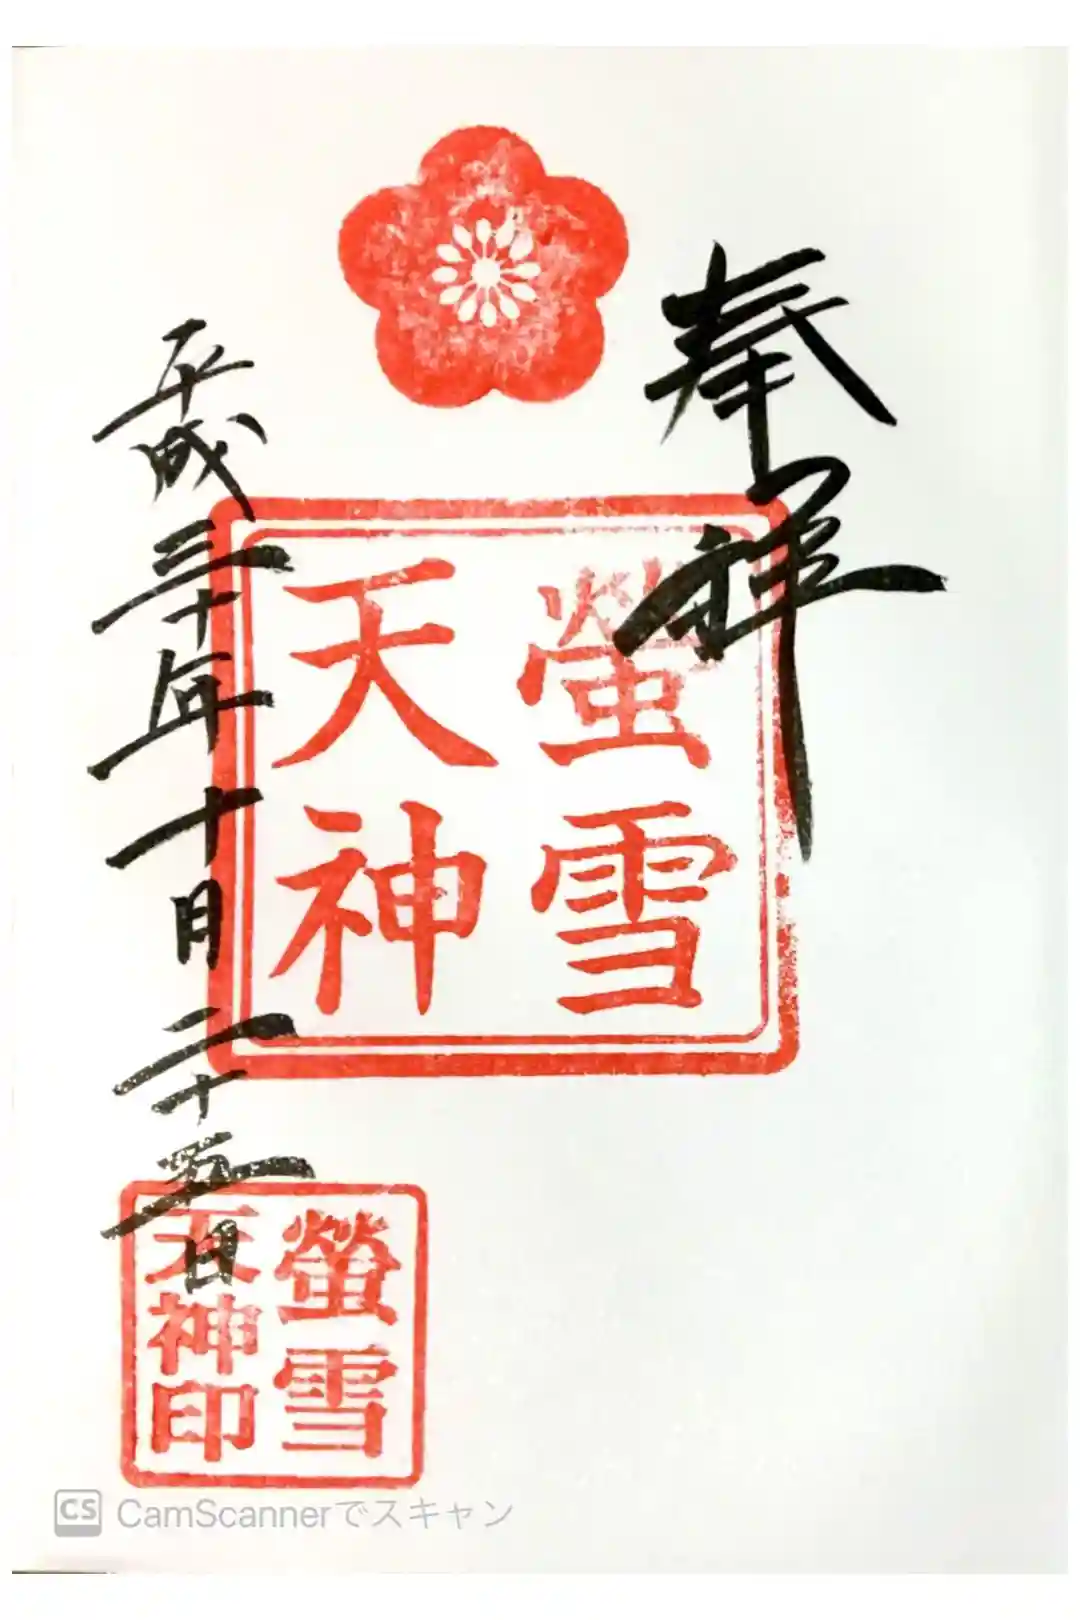 奉拝
螢雪
天神
平成三十年十月二十五日
螢雪
天神印
CS CamScannerでスキャン